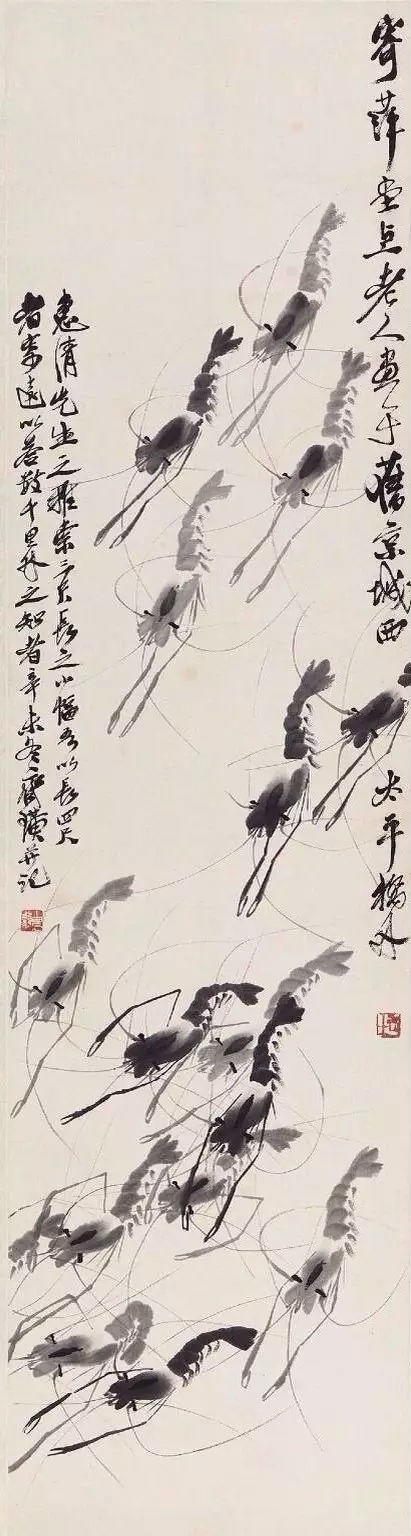 寄萍堂上老人畫于舊京城西太平橋外
惠清先生之雅索三尺長之小幅吾以長四尺
者寄遠以答數千里外之知者辛未冬齊璜并記